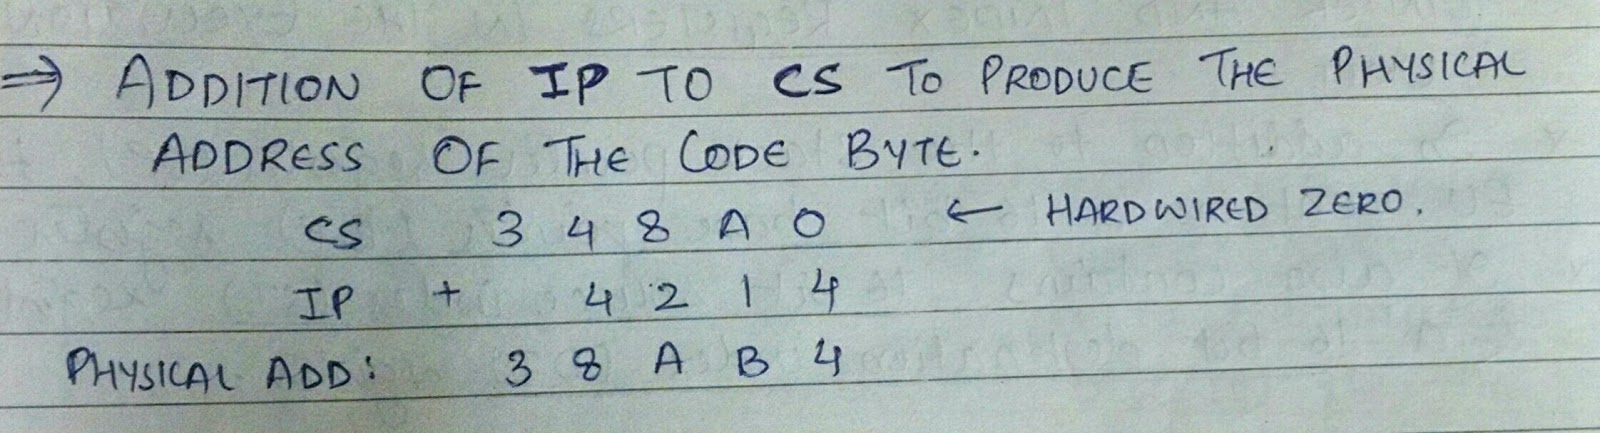 ⇒ ADDITION OF IP TO CS TO PRODUCE THE PHYSICAL
ADDRESS OF THE CODE BYTE.
CS 3 4 8 A 0 ← HARDWIRED ZERO.
IP + 4 2 1 4
PHYSICAL ADD: 3 8 A B 4